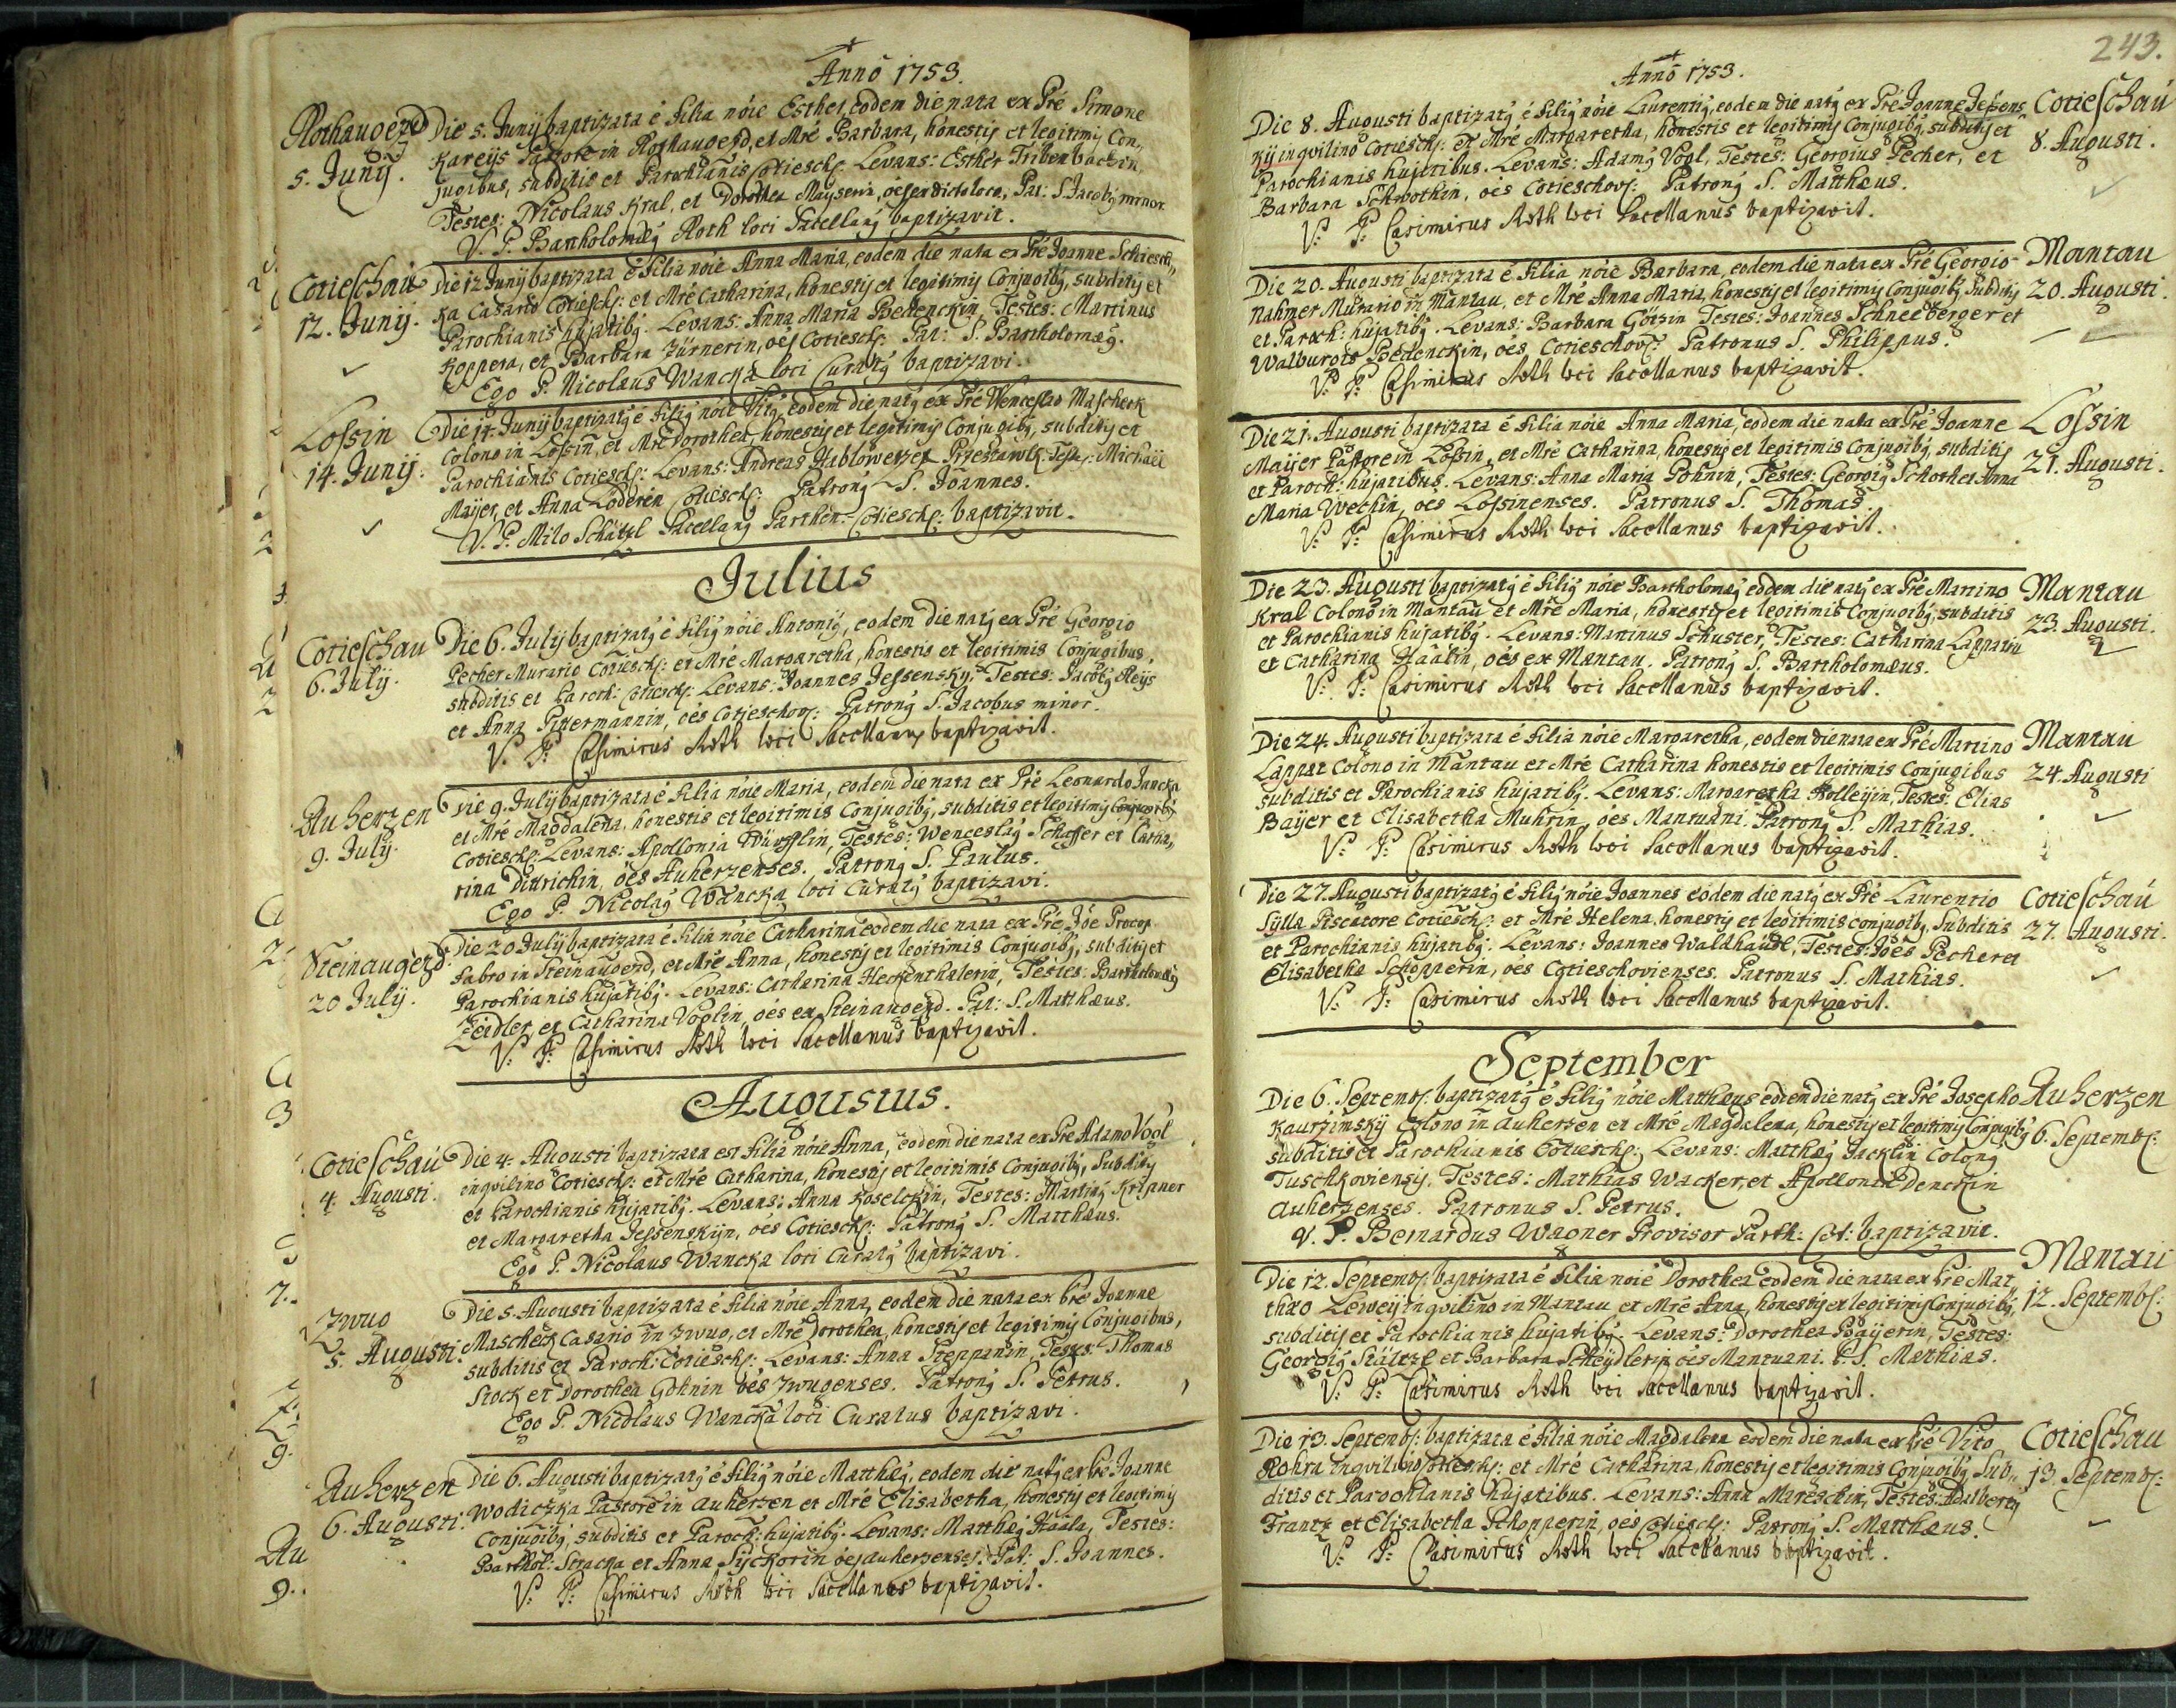 Anno 1753.
Rothaugezd
5. Junij.
Die 5. Junij baptizata é filia nóie Esther eodem die nata ex Pré Simone
Kareijs Pastore in Rothaugezd, et Mré Barbara, honestis et legitimis Con,,
jugibus, subditis et Parochianis Cotiesch: Levans: Esther
Testes: Nicolaus Kral, et Dorothea Maijserin, óes ex dicto loco, Pat: S. Jacobg minor
V. P. Bartholomæg Roth loci Sacellang baptizavit.
Cotieschau
12. Junij.
Die 12 Junij baptizata é filia nóie Anna Maria, eodem die nata ex Pré Joanne
ka Casario Cotiesch: et Mré Catharina, honestis et legitimis Conjugibg, subditis et
Parochianis hujatibg. Levans: Anna Maria Bedenckin, Testes: Martinus
Koppera, et Barbara Zürnerin, óes Cotiesch: Pat: S. Bartholomæg.
Ego P. Nicolaus Wancka loci Curatg baptizavi.
Lossin
14. Junij.
Die 14. Junij baptizatg é filig nóie Vitg, eodem die natg ex Pré Wenceslao Mascheck
Colono in Lossin, et Mré Dorothea, honestis et legitimis Conjugibg, subditis et
Parochianis Cotiesch: Levans: Andreas Test: Michaël
Maijer, et Anna Löderin Cotiesch: Patrong S. Joannes.
V. P. Milo Schätzl Sacellang Parthen: Cotiesch: baptizavit.
Julius
Cotieschau
6. Julij.
Die 6. Julij baptizatg é filig nóie Antonig, eodem die natg ex Pré Georgio
Pecher Murario Cotiesch: et Mré Margaretha, honestis et legitimis Conjugibus,
subditis et Paroch: Cotiesch: Levans: Joannes Jessensky, Testes: Jacobg Reijs
et Anna Pittermannin, óes Cotieschov: Patrong S. Jacobus minor.
V. P. Casimirus Roth loci Sacellang baptizavit.
Auherzen
9. Julij.
Die 9. Julij baptizata é filia nóie Maria, eodem die nata ex Pré Leonardo Jancka
et Mré Magdalena, honestis et legitimis Conjugibg, subditis et legitimis Conjugibg
Cotiesch: Levans: Apollonia Würfflin, Testes: Wenceslag Schaffer et Catha,,
rina Dittrichin, óes Auherzenses. Patrong S. Paulus.
Ego P. Nicolag Wancka loci Curatg baptizavi.
Steinaugezd
20 Julij.
Die 20 Julij baptizata é filia nóie Catharina eodem die nata ex Pré Jóe Procop
fabro in Steinaugezd, et Mré Anna, honestis et legitimis Conjugibg, subditis et
Parochianis hujatibg. Levans: Catharina Heckenthalerin, Testes: Bartholomæg
Zeidler, et Catharina Voglin, óes ex Steinaugezd. Pat: S. Matthæus.
V. P. Casimirus Roth loci Sacellanus baptizavit.
Augustus.
Cotieschau
4. Augusti.
Die 4. Augusti baptizata est filia nóie Anna, eodem die nata ex Pré Adamo Vogl
inqvilino Cotiesch: et Mré Catharina, honestis et legitimis Conjugibg, subditis
et Parochianis hujatibg. Levans: Anna Koselckin, Testes: Marting Kripner
et Margaretha Jessenskijn, óes Cotiesch: Patrong S. Matthæus.
Ego P. Nicolaus Wancka loci Curatg baptizavi.
Zwug
5. Augusti.
Die 5. Augusti baptizata é filia nóie Anna, eodem die nata ex Pré Joanne
Mascheck Casario in Zwug, et Mré Dorothea, honestis et legitimis Conjugibus,
subditis et Paroch: Cotiesch: Levans: Anna Steppanin, Testes: Thomas
Stock et Dorothea Göhnin óes Zwugenses. Patrong S. Petrus.
Ego P. Nicolaus Wancka loci Curatus baptizavi.
Auherzen
6. Augusti.
Die 6. Augusti baptizatg é filig nóie Matthæg, eodem die natg ex Pré Joanne
Wodiczka Pastore in Auherzen et Mré Elisabetha, honestis et legitimis
Conjugibg, subditis et Paroch: hujatibg. Levans: Matthæg Haala, Testes:
Barthol: Stracka et Anna Sijckorin óes Auherzenses. Pat: S. Joannes.
V. P. Casimirus Roth loci Sacellanus baptizavit.
243.
Anno 1753.
Die 8. Augusti baptizatg é filig nóie Laurentig, eodem die natg ex Pré Joanne Jessens,,
kij inqvilino Cotiesch: et Mré Margaretha, honestis et legitimis Conjugibg, subditis et
Parochianis hujatibus. Levans: Adamg Vogl, Testes: Georgius Pecher, et
Barbara Schrothin, óes Cotieschov: Patrong S. Matthæus.
V. P. Casimirus Roth loci Sacellanus baptizavit.
Cotieschau
8. Augusti.
Die 20. Augusti baptizata é filia nóie Barbara, eodem die nata ex Pré Georgio
Nahmer Murario in Mantau, et Mré Anna Maria, honestis et legitimis Conjugibg subditis
et Paroch: hujatibg. Levans: Barbara Götzin Testes: Joannes Schneeberger et
Walburgis Bedenckin, óes Cotieschov: Patronus S. Philippus.
V. P. Casimirus Roth loci Sacellanus baptizavit.
Mantau
20. Augusti.
Die 21. Augusti baptizata é filia nóie Anna Maria, eodem die nata ex Pré Joanne
Maijer Pastore in Lossin, et Mré Catharina, honestis et legitimis Conjugibg, subditis
et Paroch: hujatibus. Levans: Anna Maria Pohnin, Testes: Georgig Schother Anna
Maria Wechin, óes Lossinenses. Patronus S. Thomas.
V. P. Casimirus Roth loci Sacellanus baptizavit.
Lossin
21. Augusti.
Die 23. Augusti baptizatg é filig nóie Bartholomæg eodem die natg ex Pré Martino
Kral Colono in Mantau et Mré Maria, honestis et legitimis Conjugibg, subditis
et Parochianis hujatibg. Levans: Martinus Schuster, Testes: Catharina Lappatin
et Catharina Häälin, óes ex Mantau. Patrong S. Bartholomæus.
V. P. Casimirus Roth loci Sacellanus baptizavit.
Mantau
23. Augusti.
Die 24. Augusti baptizata é filia nóie Margaretha, eodem die nata ex Pré Martino
Lappat Colono in Mantau et Mré Catharina honestis et legitimis Conjugibus
subditis et Parochianis hujatibg. Levans: Margaretha Holleijin, Testes: Elias
Baijer et Elisabetha Muhrin, óes Mantuani. Patrong S. Mathias.
V. P. Casimirus Roth loci Sacellanus baptizavit.
Mantau
24. Augusti
Die 27. Augusti baptizatg é filig nóie Joannes eodem die natg ex Pré Laurentio
Sylla Piscatore Cotiesch: et Mré Helena, honestis et legitimis conjugibg, subditis
et Parochianis hujatibg. Levans: Joannes Waldhaudt, Testes: Jóes Pecher et
Elisabetha Schopperin, óes Cotieschovienses. Patronus S. Mathias.
V. P. Casimirus Roth loci Sacellanus baptizavit.
Cotieschau
27. Augusti.
September
Die 6. Septemb: baptizatg é filig nóie Matthæus eodem die natg ex Pré Josepho
Kaurzimskij Colono in Auherzen et Mré Magdalena, honestis et legitimis Conjugibg
subditis et Parochianis Cotiesch: Levans: Matthæg Jacklin Colong
Tuschkoviensis. Testes: Mathias Wacker, et Apollonia Denckin
Auherzenses. Patronus S. Petrus.
V. P. Bernardus Wagner Provisor Parth: Cot: baptizavit.
Auherzen
6. Septemb:
Die 12. Septemb: baptizata é filia nóie Dorothea eodem die nata ex Pré Mat,,
thæo Leweij inqvilino in Mantau et Mré Anna, honestis et legitimis Conjugibg,
subditis et Parochianis hujatibg. Levans: Dorothea Baijerin, Testes:
Georgig Stältzl et Barbara Scheijdlerin óes Mantuani. P. S. Mathias.
V. P. Casimirus Roth loci Sacellanus baptizavit.
Mantau
12. Septemb:
Die 13. Septemb: baptizata é filia nóie Magdalena eodem die nata ex Pré Vito
Rohra inqvilino Cotiesch: et Mré Catharina, honestis et legitimis Conjugibg, sub,,
ditis et Parochianis hujatibus. Levans: Anna Mareschin, Testes: Adalbertg
Frantz et Elisabetha Schopperin, óes Cotiesch: Patrong S. Matthæus.
V. P. Casimirus Roth loci Sacellanus baptizavit.
Cotieschau
13. Septemb: